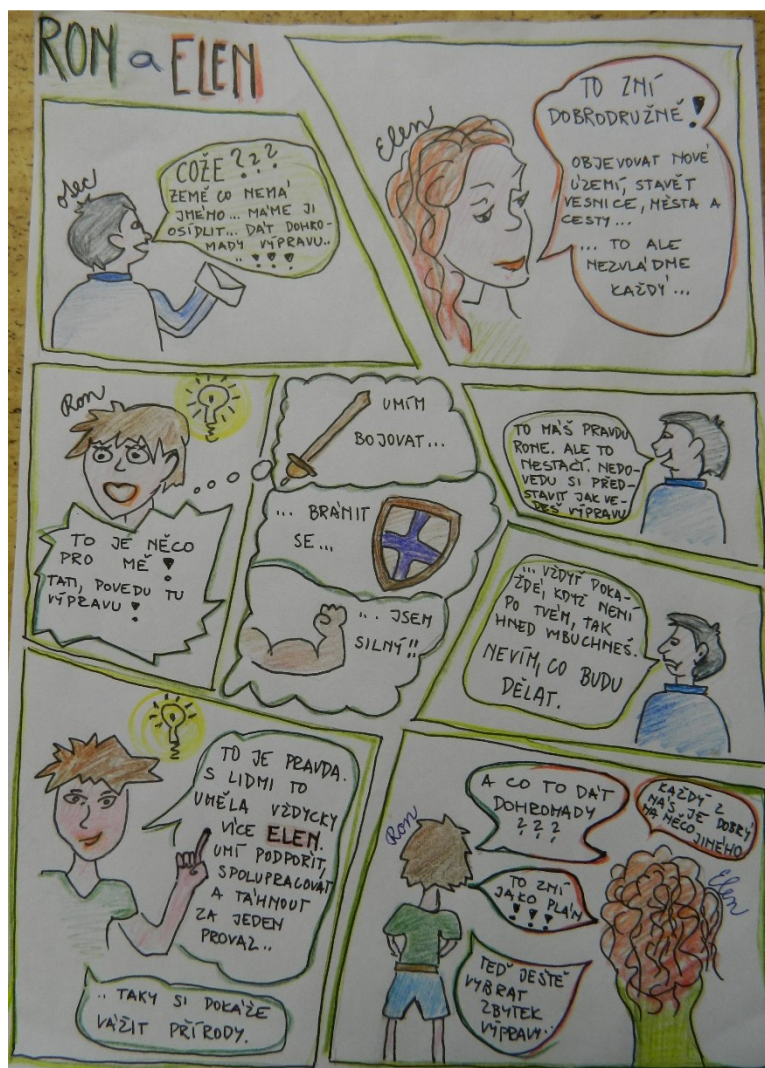 RON a ELEN
otec
COŽE ???
ZEMĚ CO NEMÁ
JMÉNO... MÁME JI
OSÍDLIT... DÁT DOHRO-
MADY VÝPRAVU..
..!!!
Elen
TO ZNÍ
DOBRODRUŽNĚ!
OBJEVOVAT NOVÉ
ÚZEMÍ, STAVĚT
VESNICE, MĚSTA A
CESTY...
... TO ALE
NEZVLÁDME
KAŽDÝ...
Ron
TO JE NĚCO
PRO MĚ!
TATI, POVEDU TU
VÝPRAVU!
UMÍM
BOJOVAT...
... BRÁNIT
SE...
... JSEM
SILNÝ!!
TO MÁŠ PRAVDU
RONE. ALE TO
NESTAČÍ. NEDO-
VEDU SI PŘED-
STAVIT JAK VE-
DEŠ VÝPRAVU
... VŽDYŤ POKA-
ŽDÉ, KDYŽ NENÍ
PO TVÉM, TAK
HNED VYBUCHNEŠ.
NEVÍM, CO BUDU
DĚLAT.
TO JE PRAVDA.
S LIDMI TO
UMĚLA VŽDYCKY
VÍCE ELEN.
UMÍ PODPOŘIT,
SPOLUPRACOVAT
A TÁHNOUT
ZA JEDEN
PROVAZ..
.. TAKY SI DOKÁŽE
VÁŽIT PŘÍRODY.
Ron
A CO TO DÁT
DOHROMADY
???
KAŽDÝ Z
NÁS JE DOBRÝ
NA NĚCO JINÉHO
Elen
TO ZNÍ
JAKO PLÁN
!!!
TEĎ JEŠTĚ
VYBRAT
ZBYTEK
VÝPRAVY..